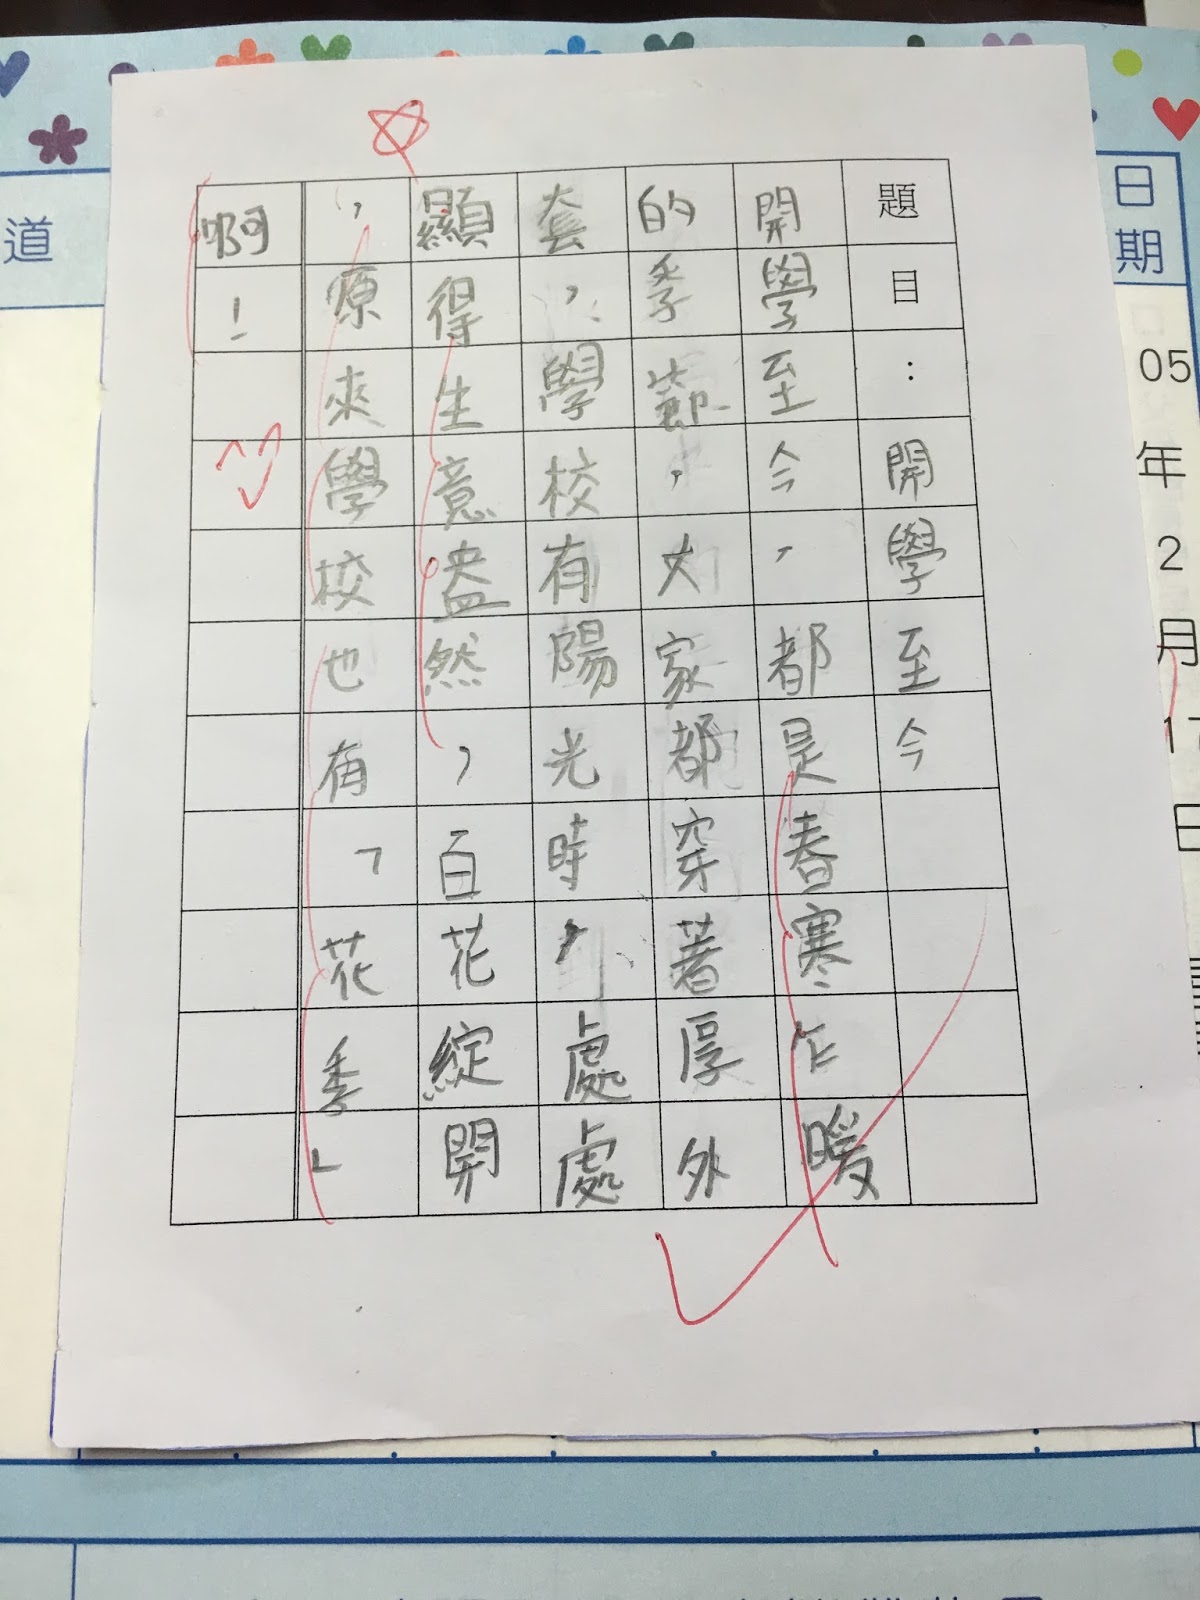 題目：開學至今
開學至今，都是春寒乍暖
的季節，大家都穿著厚外
套，學校有陽光時，處處
顯得生意盎然，百花綻開
，原來學校也有「花季」
啊！
日期
05年2月17日
道